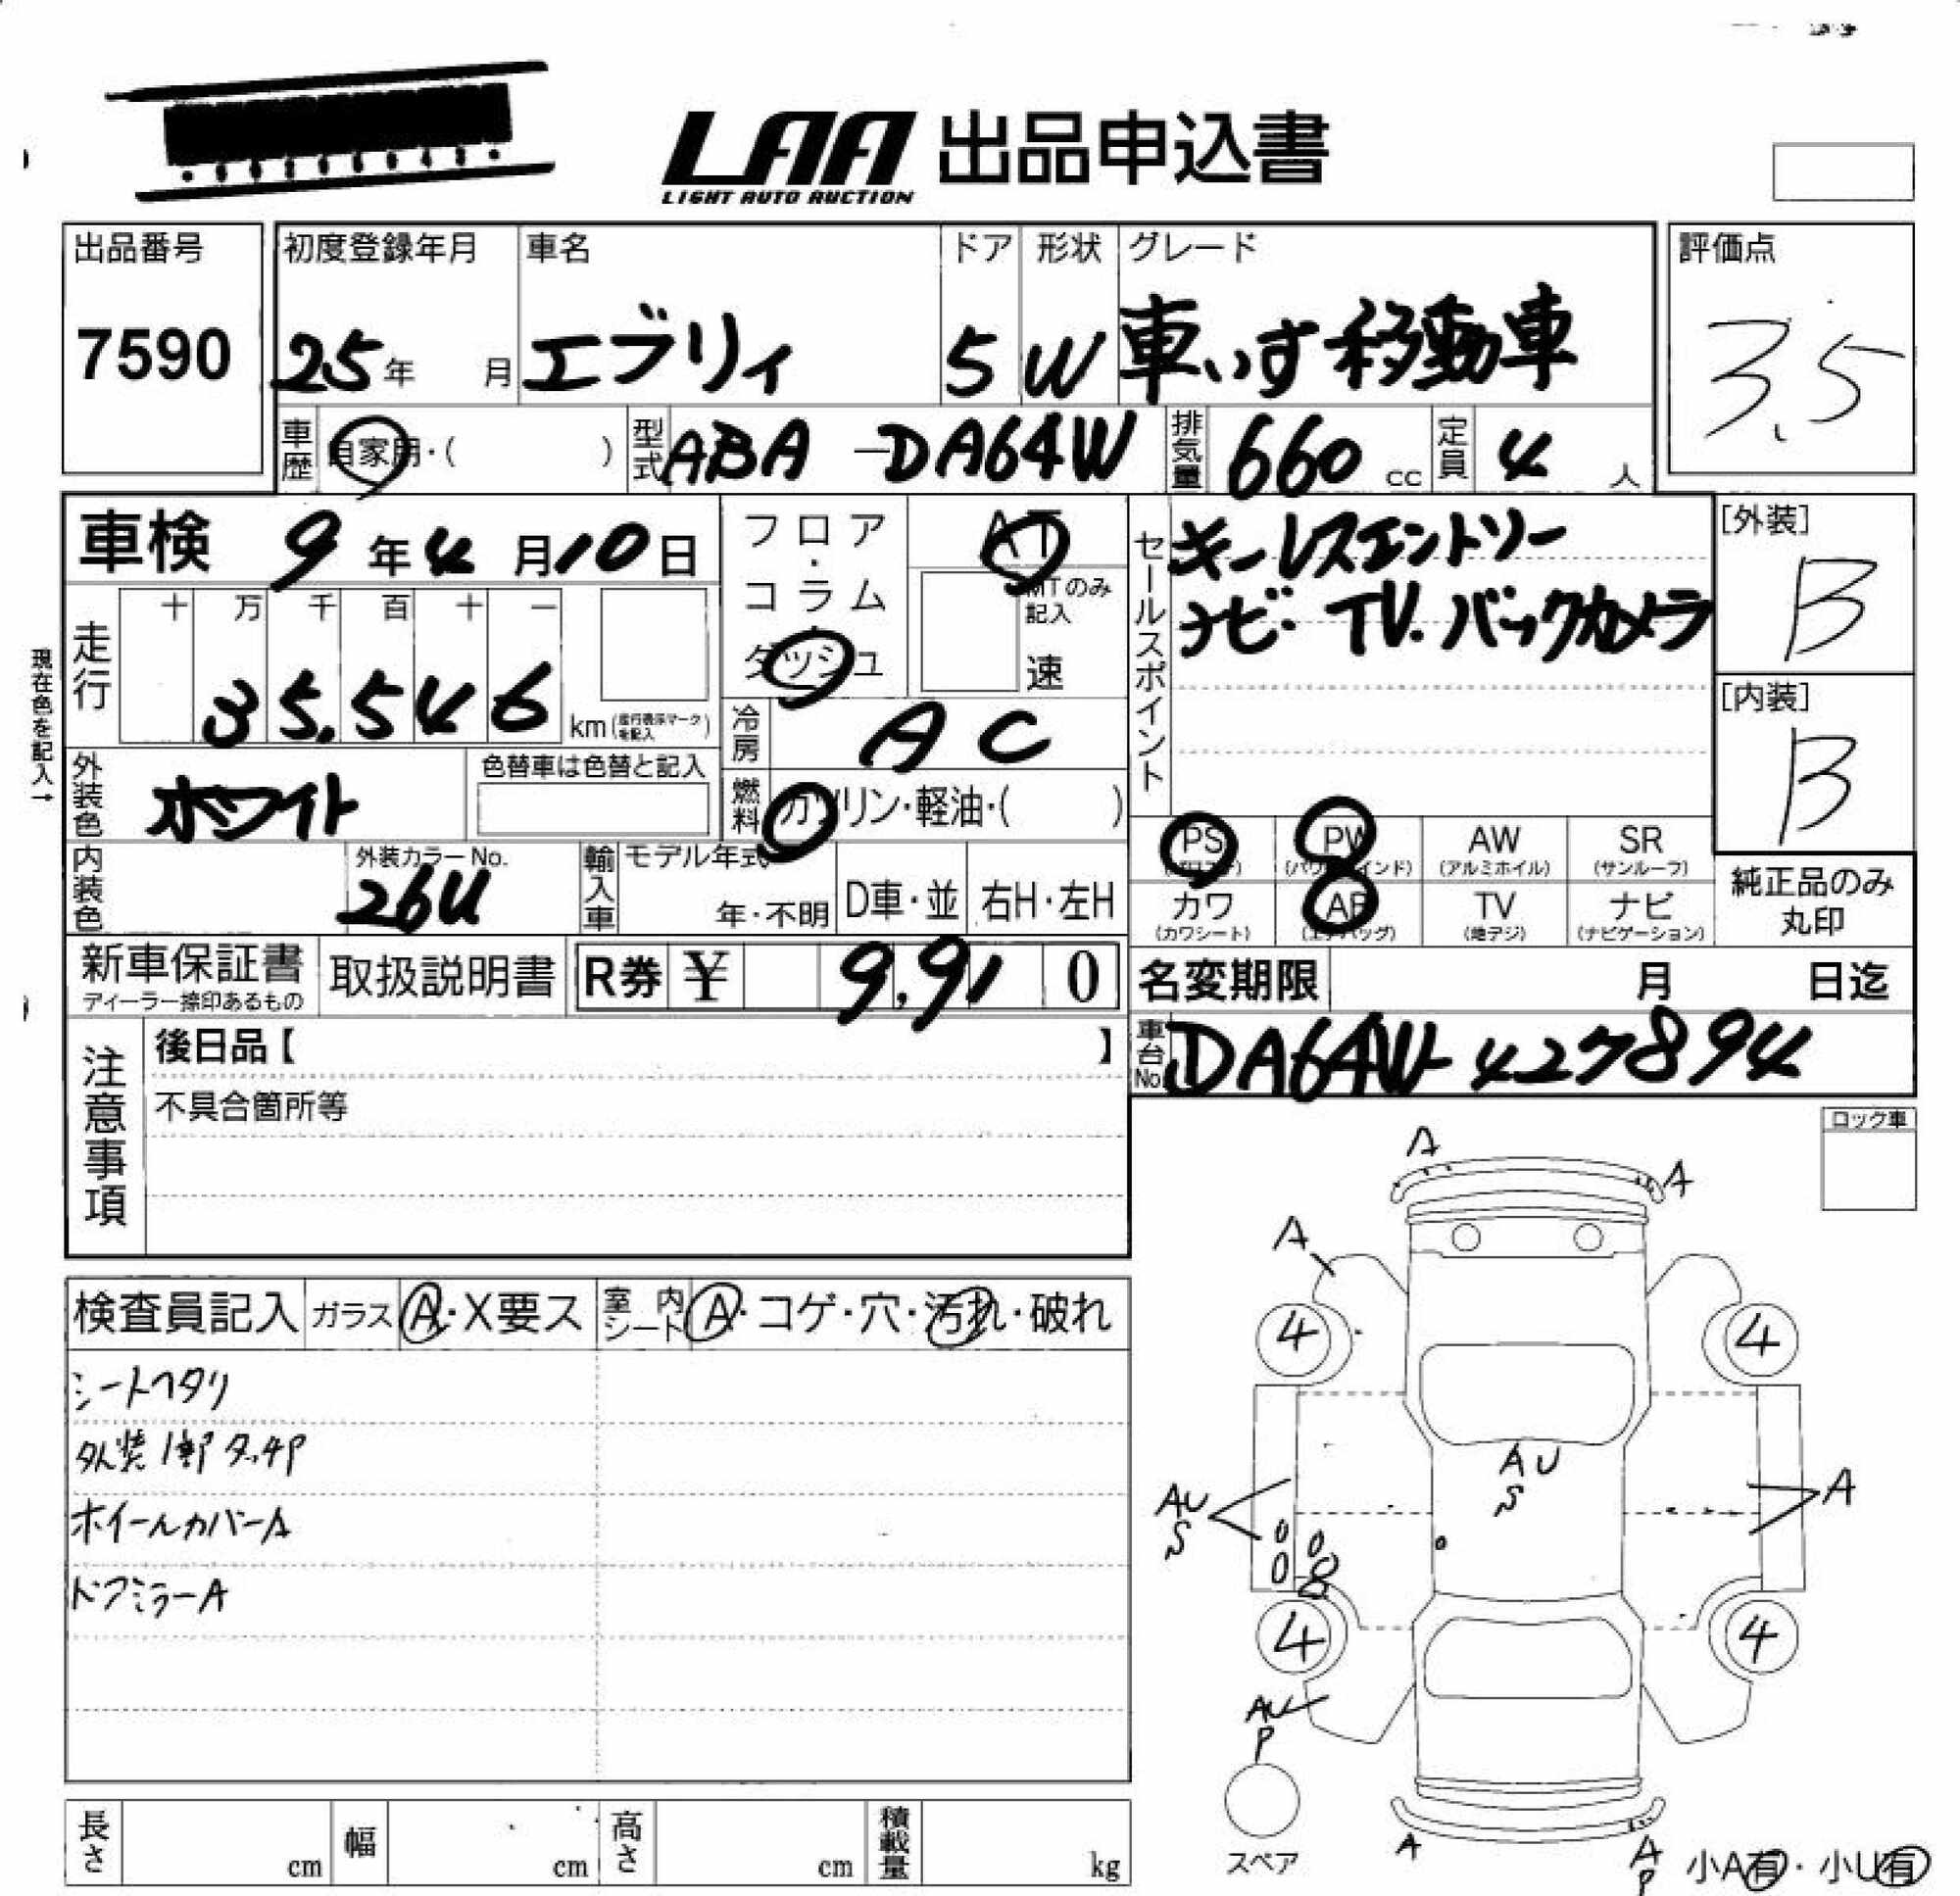 LAA 出品申込書
LIGHT AUTO AUCTION
出品番号
7590
初度登録年月
25年 月
車名
エブリィ
ドア
5
形状
W
グレード
車いす移動車
評価点
3.5
車歴
自家用・( )
型式
ABA-DA64W
排気量
660 cc
定員
4 人
車検 9年4月10日
現在色を記入→
走行
十 万 千 百 十 一
35,546 km (走行表示マークを記入)
外装色
ホワイト
色替車は色替と記入
内装色
外装カラーNo.
26U
フロア・コラム・ダッシュ
AT
MTのみ記入
速
冷房
AC
燃料
ガソリン・軽油・( )
輸入車
モデル年式
年・不明
D車・並
右H・左H
セールスポイント
キーレスエントリー
ナビ・TV.バックカメラ
[外装]
B
[内装]
B
PS PW AW SR
(パワステ) (パワーウインド) (アルミホイル) (サンルーフ)
カワ AB TV ナビ
(カワシート) (エアバッグ) (地デジ) (ナビゲーション)
純正品のみ
丸印
新車保証書
ディーラー捺印あるもの
取扱説明書
R券 ¥ 9,91 0
名変期限 月 日迄
車台No.
DA64W-427894
注意事項
後日品【 】
不具合箇所等
ロック車
検査員記入
ガラス A・X要ス
室内シート A・コゲ・穴・汚れ・破れ
シートヘタリ
外装1部タッチP
ホイールカバーA
ドアミラーA
A
A
A
4 4
AU
S
AU
S
A
4 4
AU
P
スペア
A
A
P
小A有・小U有
長さ cm
幅 cm
高さ cm
積載量 kg